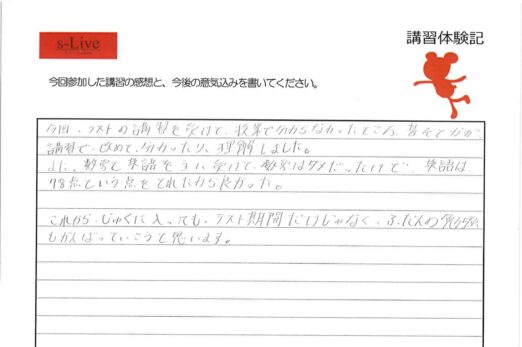 s-Live
講習体験記
今回参加した講習の感想と、今後の意気込みを書いてください。
今回、テストの講習を受けて、授業で分からなかったところ、
講習で、改めて、分かったり、理解しました。
また、数学と英語を主に受けて、数学はダメだったけど、英語は、
78点という点をとれたから良かった。
これから、じゅくに入っても、テスト期間だけじゃなく、ふだんの
もがんばっていこうと思います。